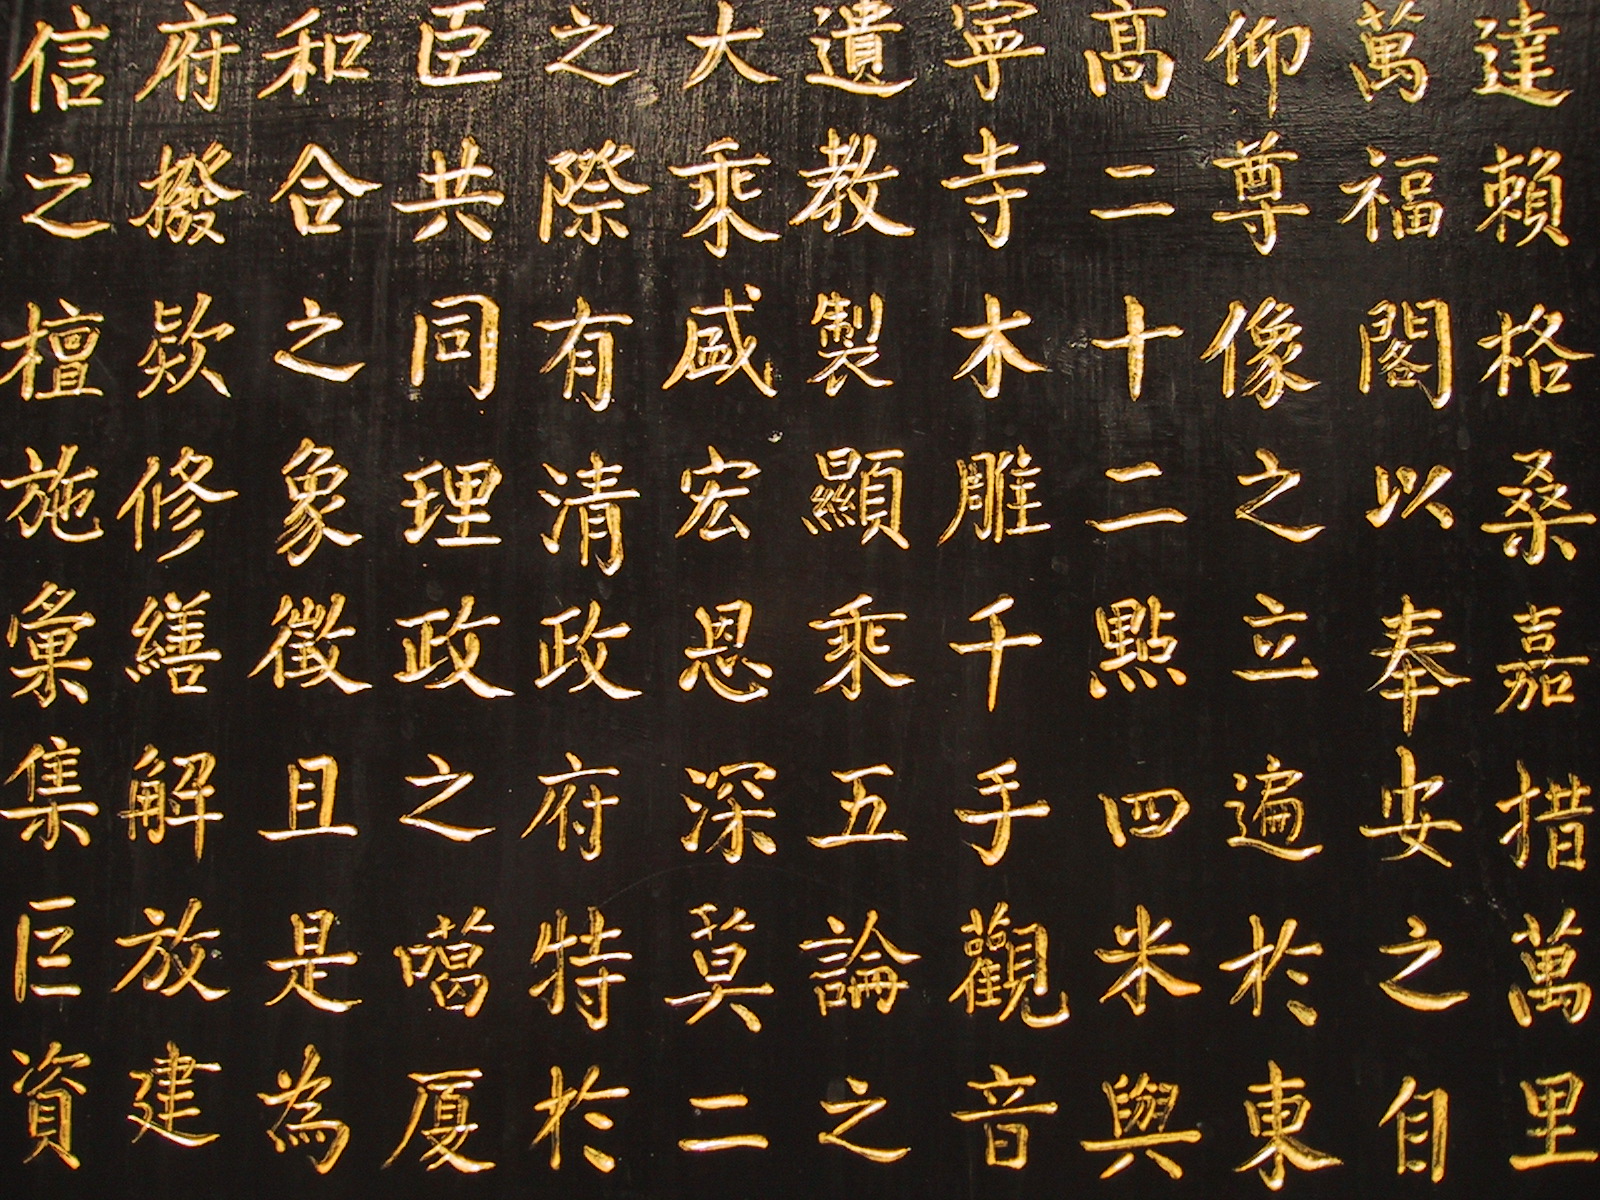 達賴格桑嘉措萬里
萬福閣以奉安之自
仰尊像之立遍於東
高二十二點四米與
寧寺木雕千手觀音
遺教製顯乘五論之
大乘盛宏恩深莫二
之際有清政府特於
臣共同理政之噶厦
和合之象徵且是為
府撥欵修繕解放建
信之檀施彙集巨資